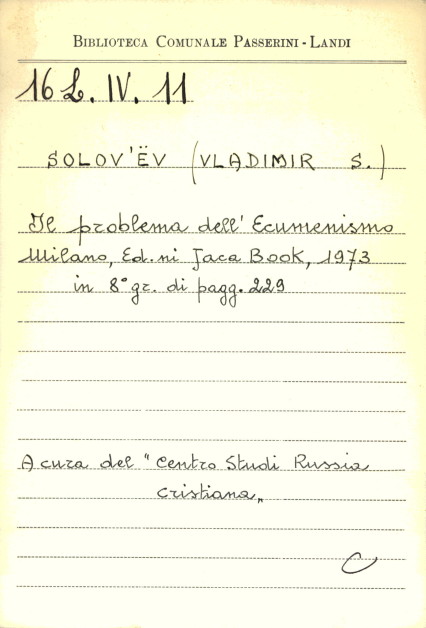 BIBLIOTECA COMUNALE PASSERINI - LANDI
16 L. IV. 11
SOLOV'ËV (VLADIMIR S.)
Il problema dell'Ecumenismo
Milano, Ed.ni Jaca Book, 1973
in 8° gr. di pagg. 229
A cura del "Centro Studi Russia
cristiana„
C